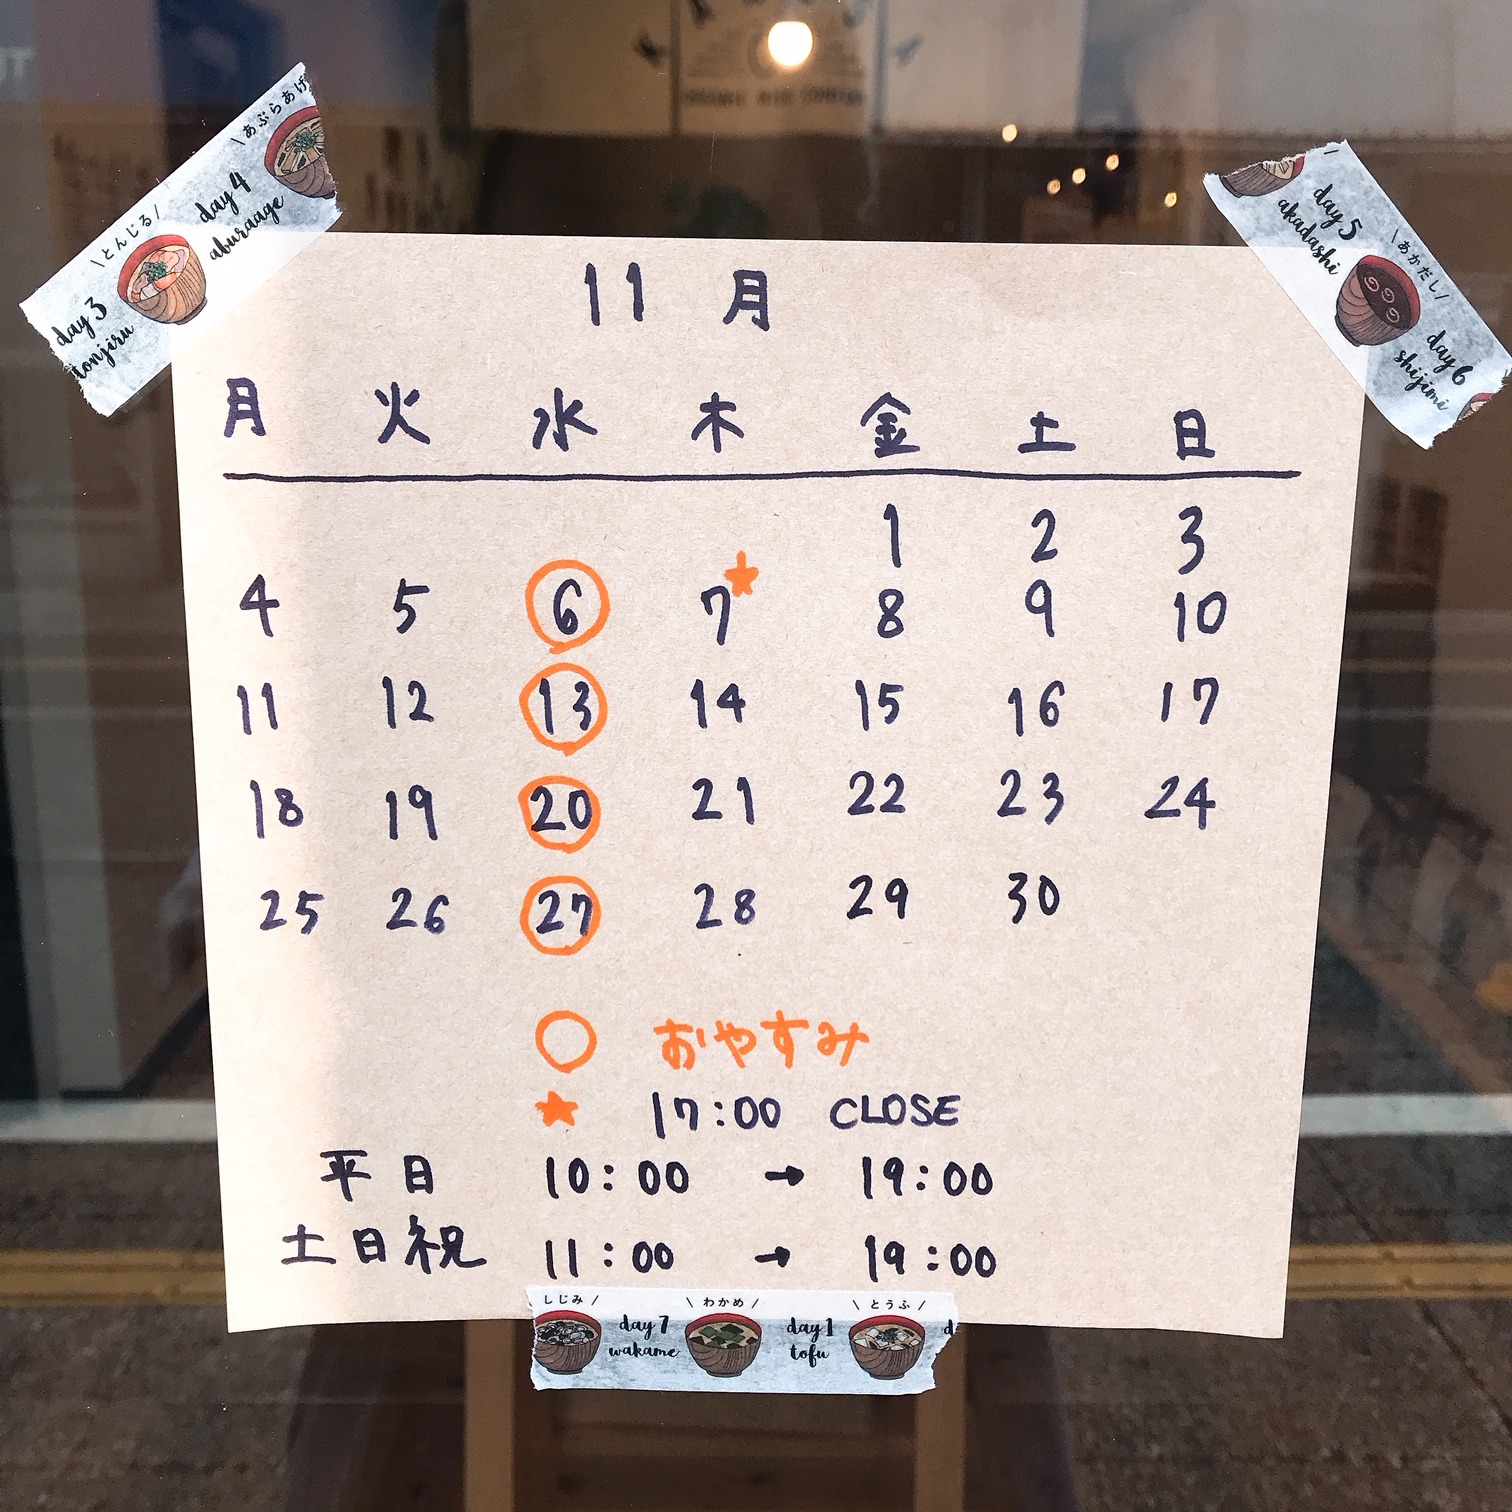 \あぶらあげ
day4
aburaage
\とんじる/
day3
tonjiru
day5
akadashi
\あかだし/
day6
shijimi
11 月
月 火 水 木 金 土 日
1 2 3
4 5 6 7★ 8 9 10
11 12 13 14 15 16 17
18 19 20 21 22 23 24
25 26 27 28 29 30
○ おやすみ
★ 17:00 CLOSE
平日 10:00 → 19:00
土日祝 11:00 → 19:00
しじみ/ \わかめ/ \とうふ/
day7 day1 d
wakame tofu